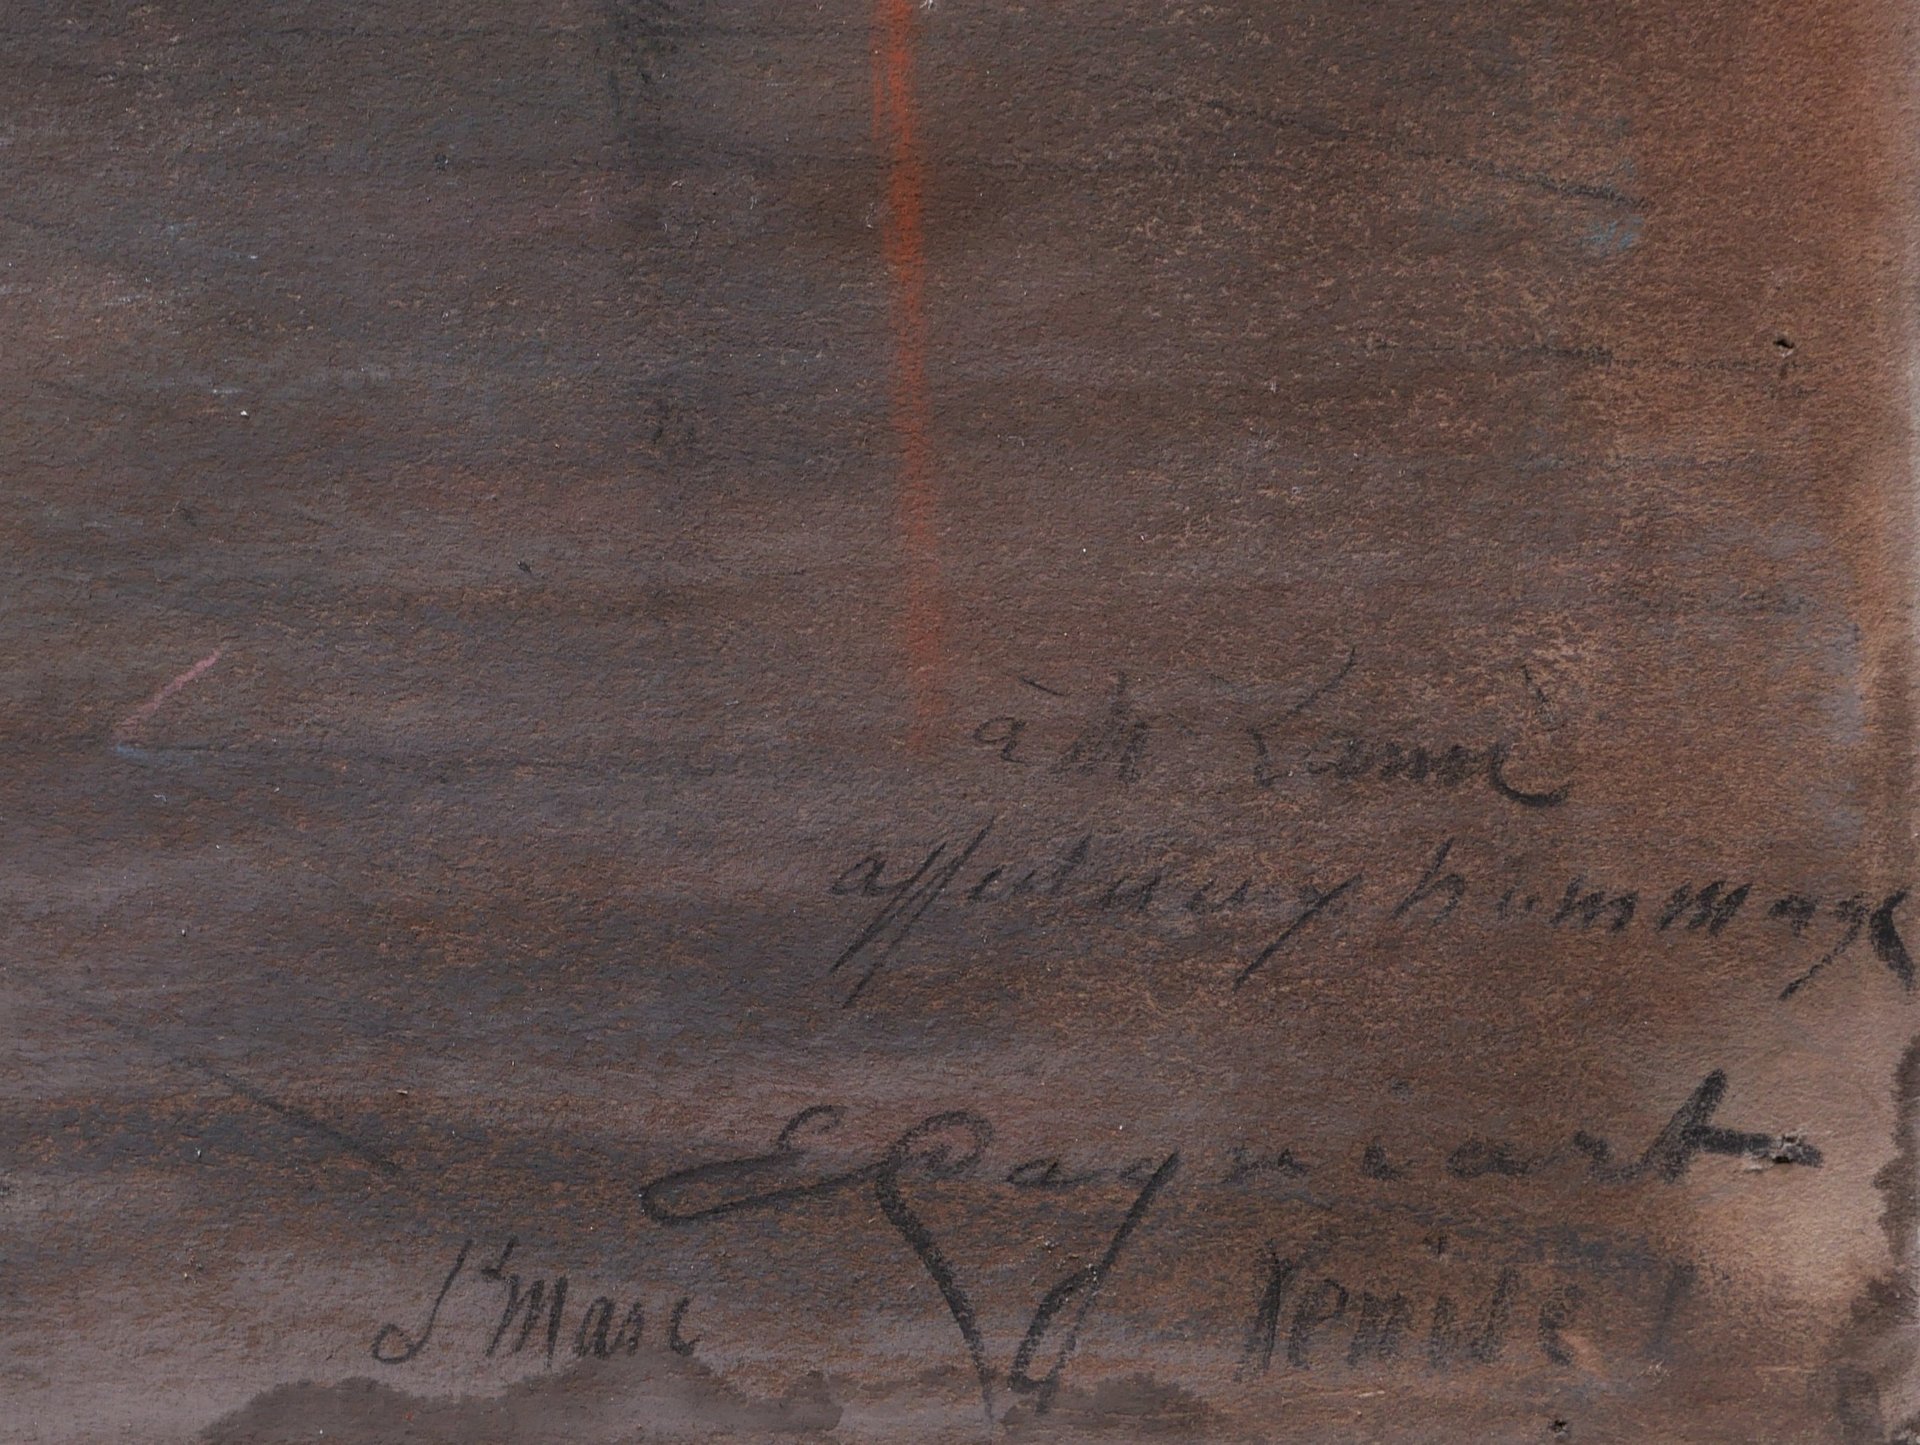 à M
affectueux hommage
E Cagniart
St Marc Venise